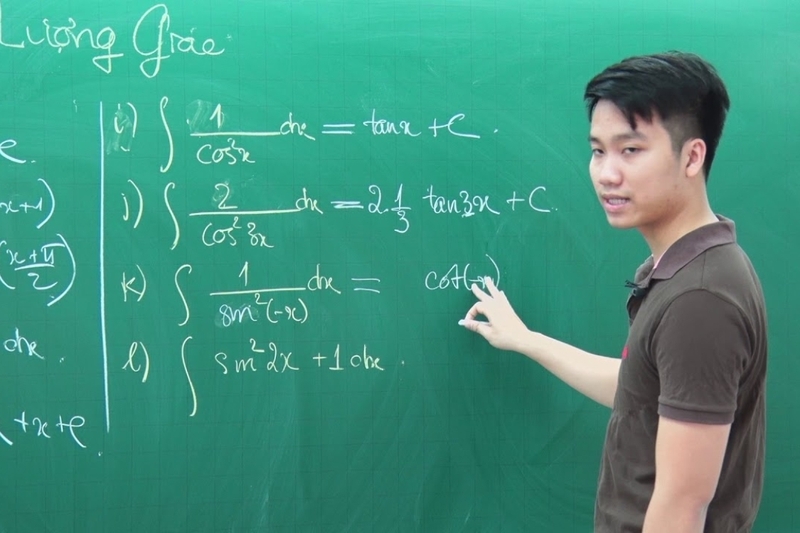 Lượng Giác
x+1)
(x+π/2)
dx.
+x+C
i) ∫ 1/cos²x dx = tanx + C.
j) ∫ 2/cos² 3x dx = 2.1/3 tan3x + C.
k) ∫ 1/sin²(-x) dx = cot(-x)
l) ∫ sin² 2x + 1 dx.